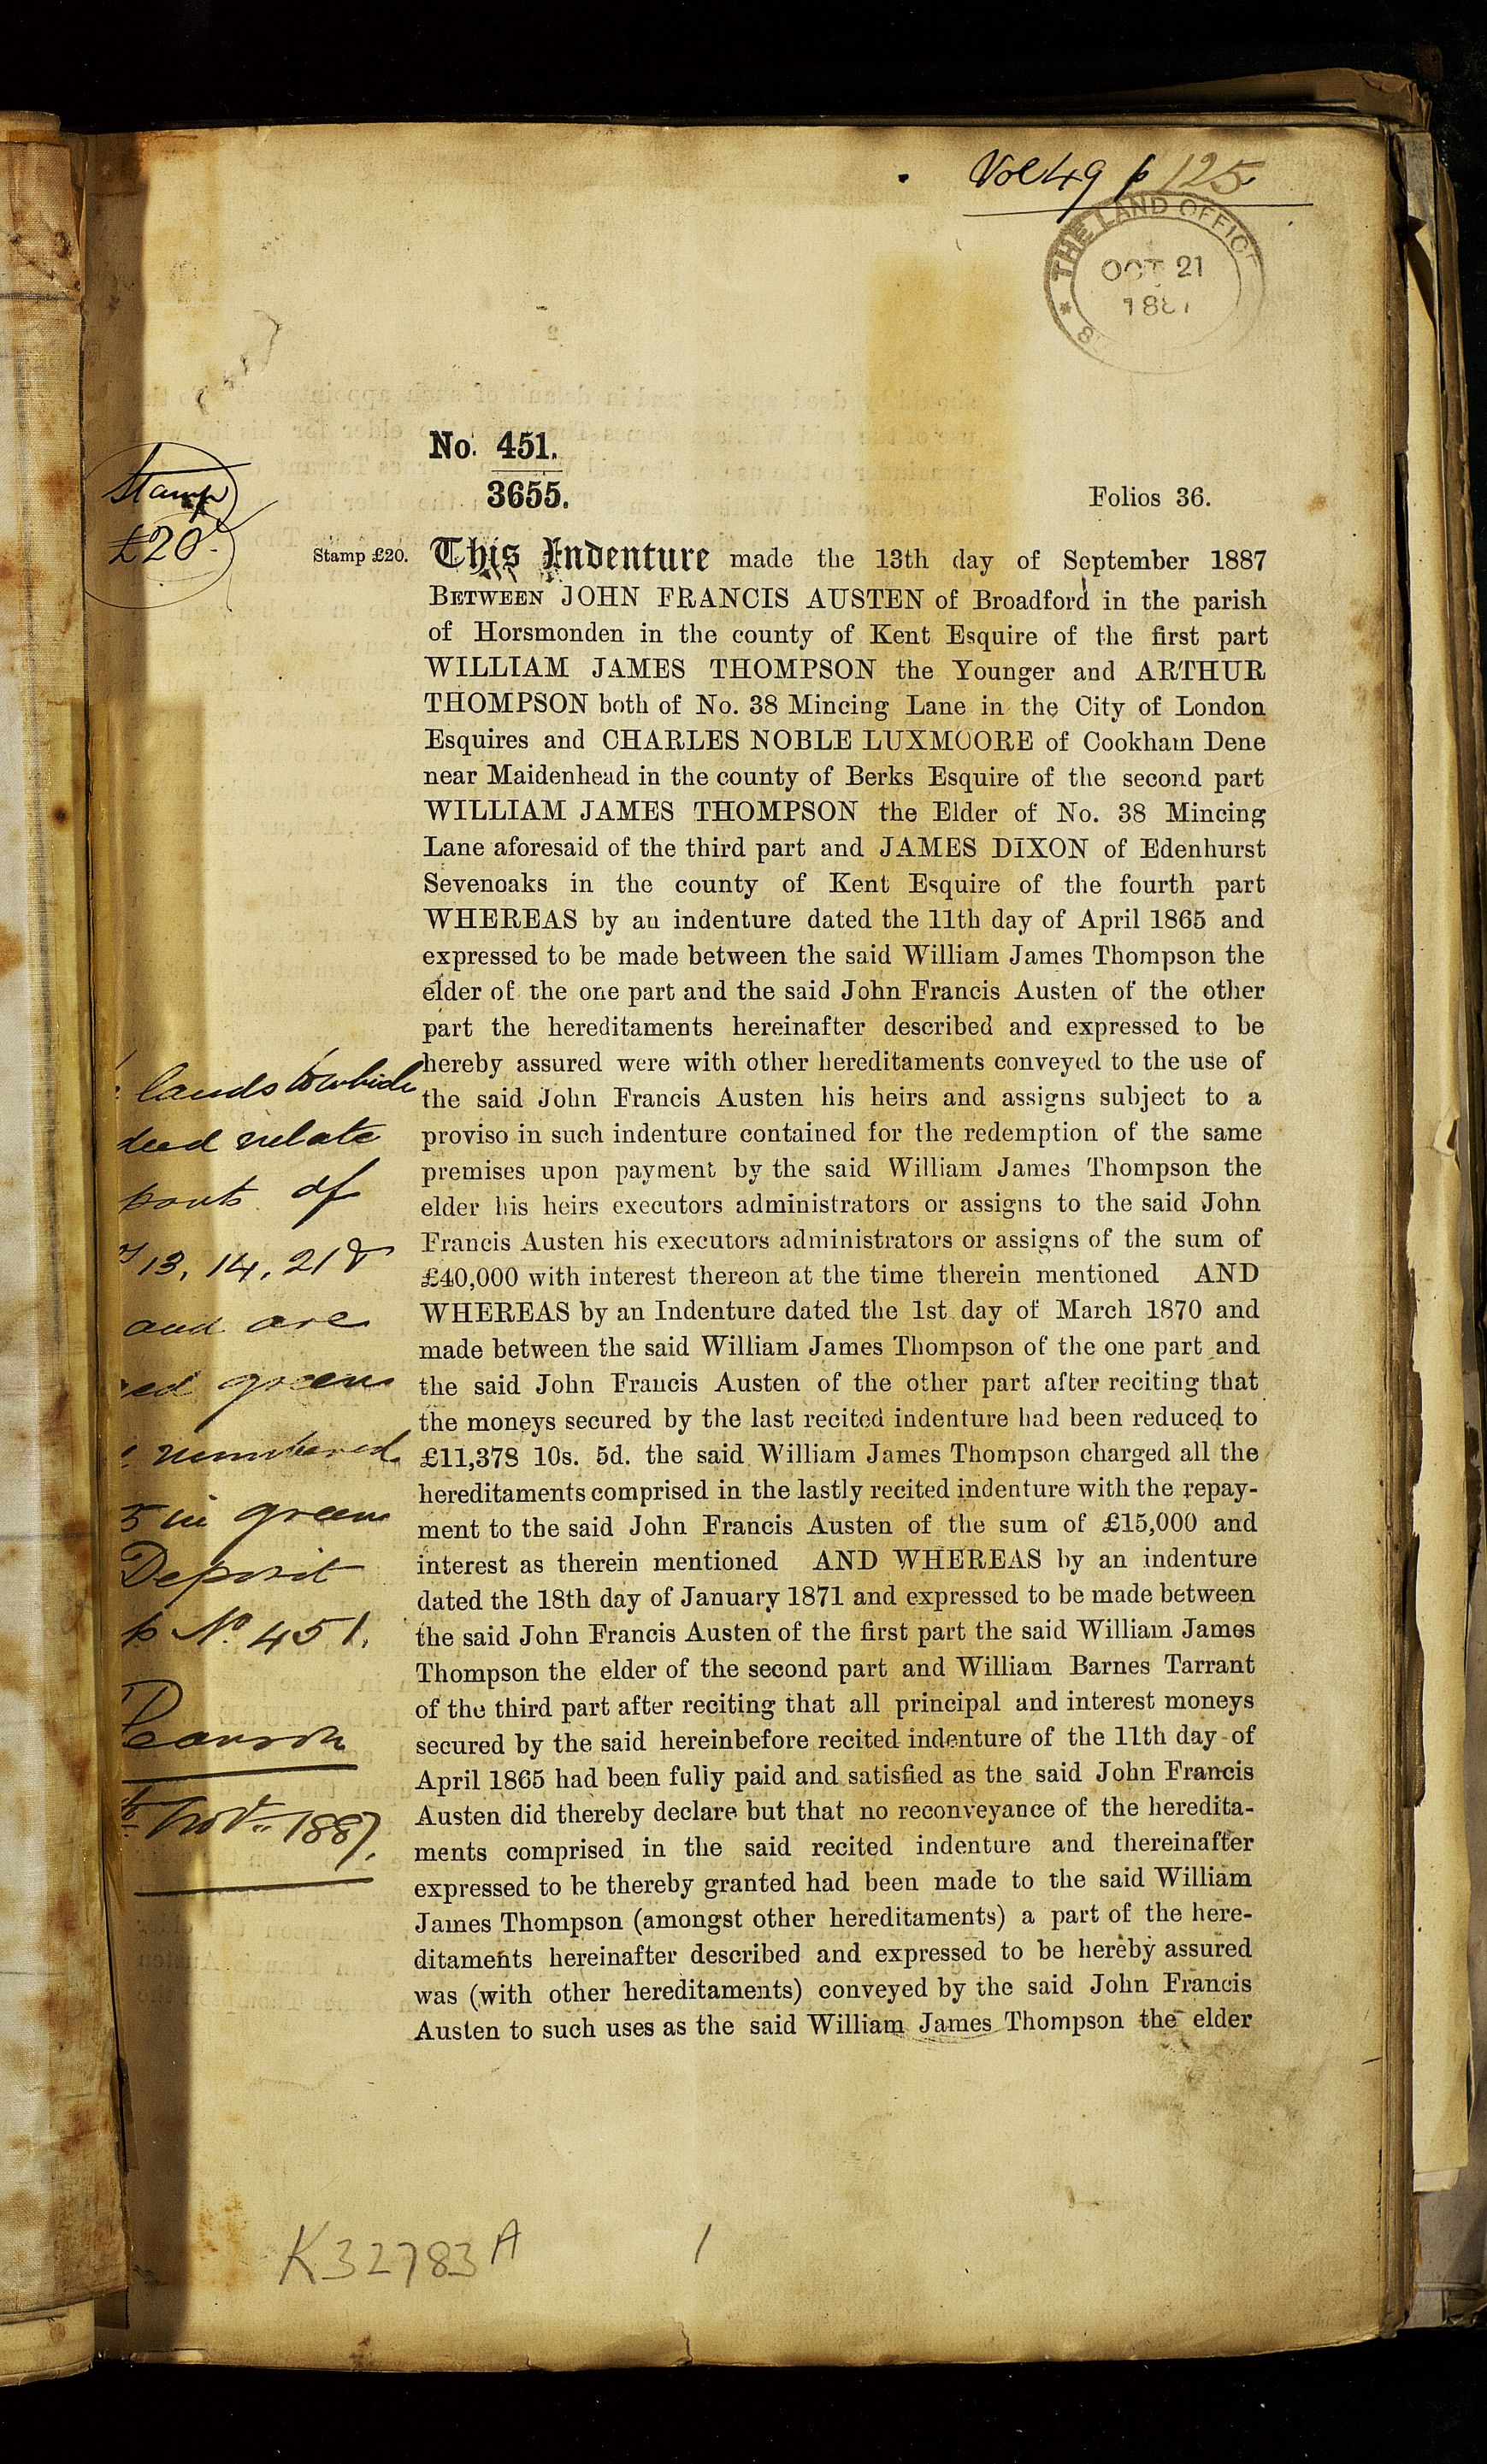 Vol 49 p 125.
THE LAND OFFICE
OCT 21
188
No. 451.
3655.
Folios 36.
Stamp
£20.
Stamp £20.
This Indenture made the 13th day of September 1887
BETWEEN JOHN FRANCIS AUSTEN of Broadford in the parish
of Horsmonden in the county of Kent Esquire of the first part
WILLIAM JAMES THOMPSON the Younger and ARTHUR
THOMPSON both of No. 38 Mincing Lane in the City of London
Esquires and CHARLES NOBLE LUXMOORE of Cookham Dene
near Maidenhead in the county of Berks Esquire of the second part
WILLIAM JAMES THOMPSON the Elder of No. 38 Mincing
Lane aforesaid of the third part and JAMES DIXON of Edenhurst
Sevenoaks in the county of Kent Esquire of the fourth part
WHEREAS by an indenture dated the 11th day of April 1865 and
expressed to be made between the said William James Thompson the
elder of the one part and the said John Francis Austen of the other
part the hereditaments hereinafter described and expressed to be
hereby assured were with other hereditaments conveyed to the use of
the said John Francis Austen his heirs and assigns subject to a
proviso in such indenture contained for the redemption of the same
premises upon payment by the said William James Thompson the
elder his heirs executors administrators or assigns to the said John
Francis Austen his executors administrators or assigns of the sum of
£40,000 with interest thereon at the time therein mentioned AND
WHEREAS by an Indenture dated the 1st day of March 1870 and
made between the said William James Thompson of the one part and
the said John Francis Austen of the other part after reciting that
the moneys secured by the last recited indenture had been reduced to
£11,378 10s. 5d. the said William James Thompson charged all the
hereditaments comprised in the lastly recited indenture with the repay-
ment to the said John Francis Austen of the sum of £15,000 and
interest as therein mentioned AND WHEREAS by an indenture
dated the 18th day of January 1871 and expressed to be made between
the said John Francis Austen of the first part the said William James
Thompson the elder of the second part and William Barnes Tarrant
of the third part after reciting that all principal and interest moneys
secured by the said hereinbefore recited indenture of the 11th day of
April 1865 had been fully paid and satisfied as the said John Francis
Austen did thereby declare but that no reconveyance of the heredita-
ments comprised in the said recited indenture and thereinafter
expressed to be thereby granted had been made to the said William
James Thompson (amongst other hereditaments) a part of the here-
ditaments hereinafter described and expressed to be hereby assured
was (with other hereditaments) conveyed by the said John Francis
Austen to such uses as the said William James Thompson the elder
lands to which
deed relate
part of
13, 14, 21 &
and are
ed green
numbered
5 in green
Deposit
p No. 451.
Pearson
Novr. 1887.
K32783A
1